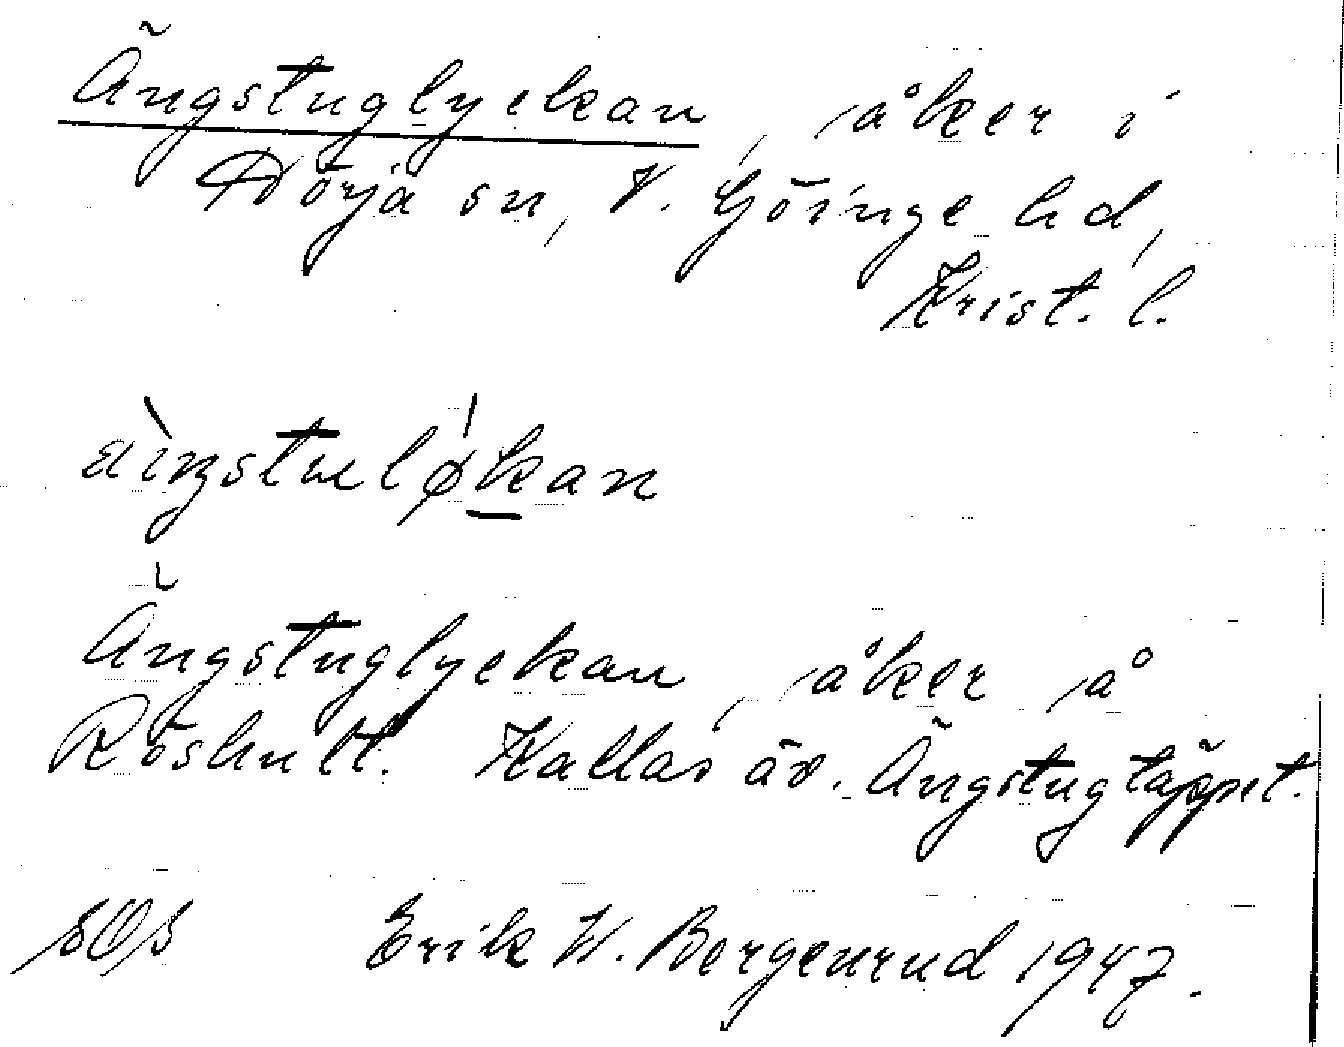 Ängstuglyckan, åker i
Dörja sn, V. Göinge hd,
Krist. l.
Ängstuglyckan, åker å
Röshult. Kallas äv. Ängstugtäppet.
SOS Erik W. Bergenrud 1947.